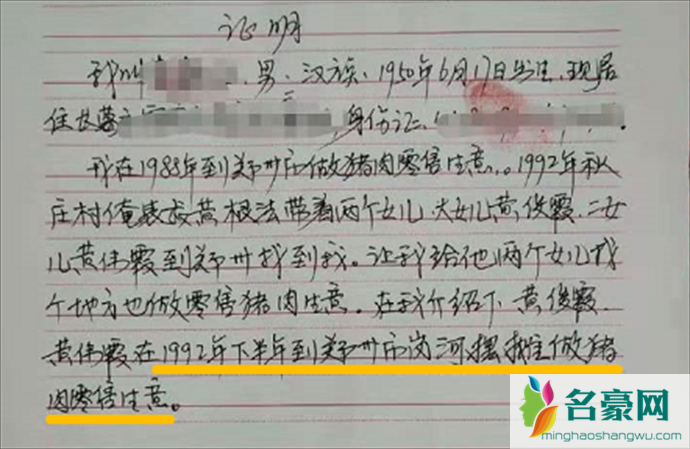 证明
我叫 男、汉族、1950年6月17日出生，现居
住长 身份证、
我在1988年到郑州市做猪肉零售生意。1992年秋
庄村俺表叔黄根法带着两个女儿 大女儿黄俊霞、二女
儿黄伟霞到郑州找到我。让我给他两个女儿找
个地方也做零售猪肉生意。在我介绍下 黄俊霞、
黄伟霞在1992年下半年到郑州市岗河摆摊做猪
肉零售生意。
名豪网
minghaoshangwu.com